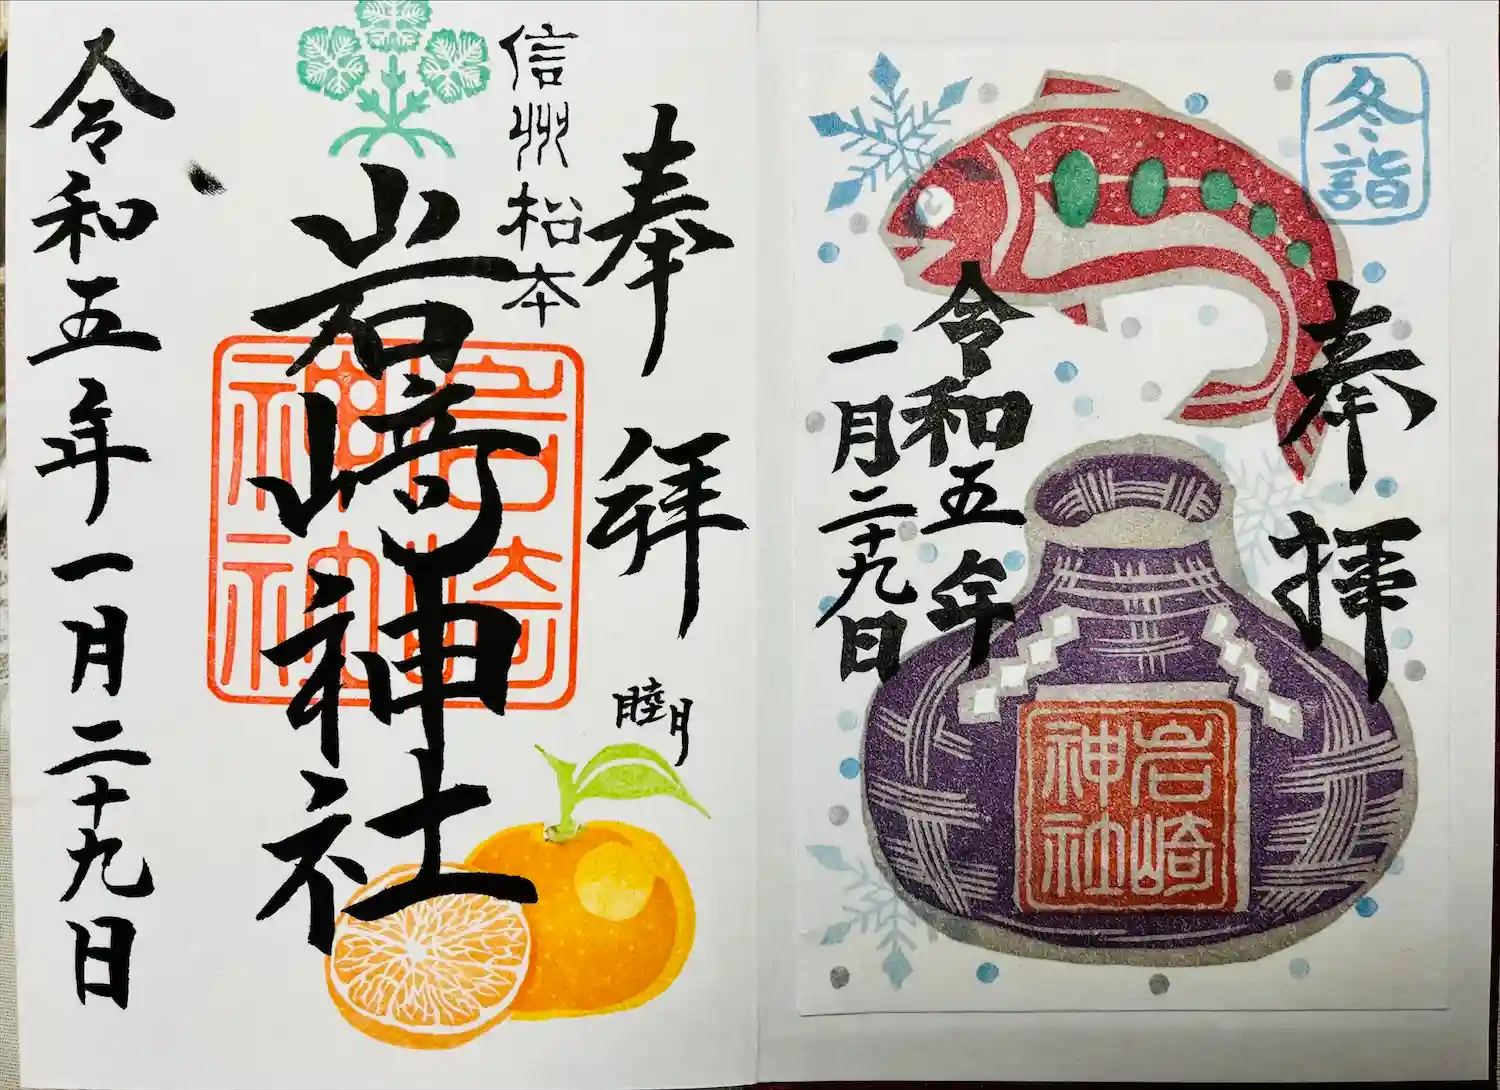 冬詣
奉拝
令和五年
一月二十九日
岩崎
神社
奉拝
睦月
信州松本
岩崎神社
岩崎
神社
令和五年一月二十九日